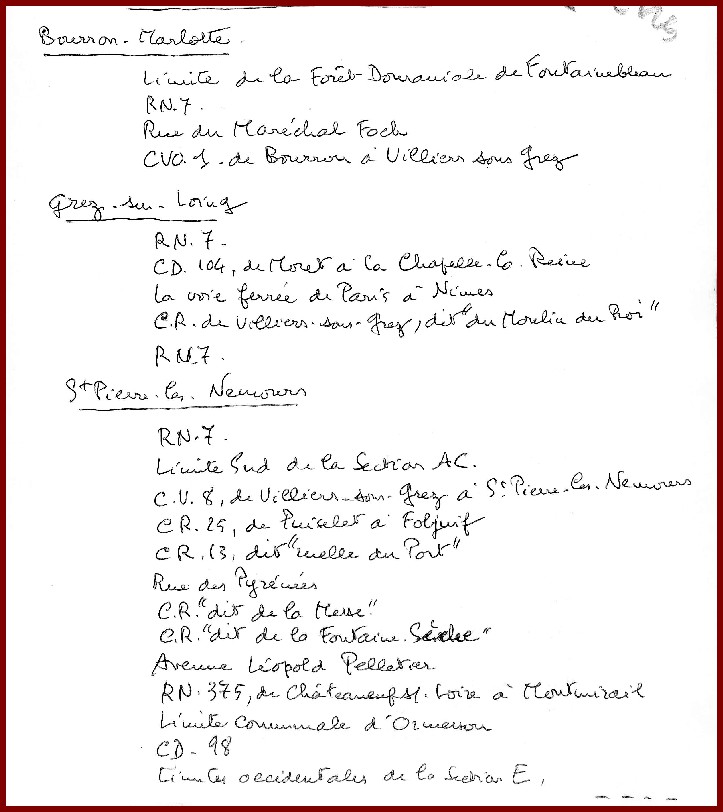 Bourron-Marlotte.
Limite de la Forêt-Domaniale de Fontainebleau
RN.7.
Rue du Maréchal Foch
CVO.1. de Bourron à Villiers sous Grez
Grez-sur-Loing
RN.7-
CD.104, de Moret à la Chapelle-la-Reine
La voie ferrée de Paris à Nîmes
C.R. de Villiers-sous-Grez, dit "du Moulin du Roi"
RN.7.
St Pierre-les-Nemours
RN.7.
Limite Sud de la Section AC.
C.V. 8, de Villiers-sous-Grez à St. Pierre-les-Nemours
CR.25, de Puiselet à Foljuif
CR.13, dit "ruelle du Port"
Rue des Pyrénées
C.R. "dit de la Messe"
C.R. "dit de la Fontaine Sèche"
Avenue Léopold Pelletier
RN.375, de Châteauneuf s/. Loire à Montmirail
Limite Communale d'Ormesson
CD-98
Limites occidentales de la Section E,